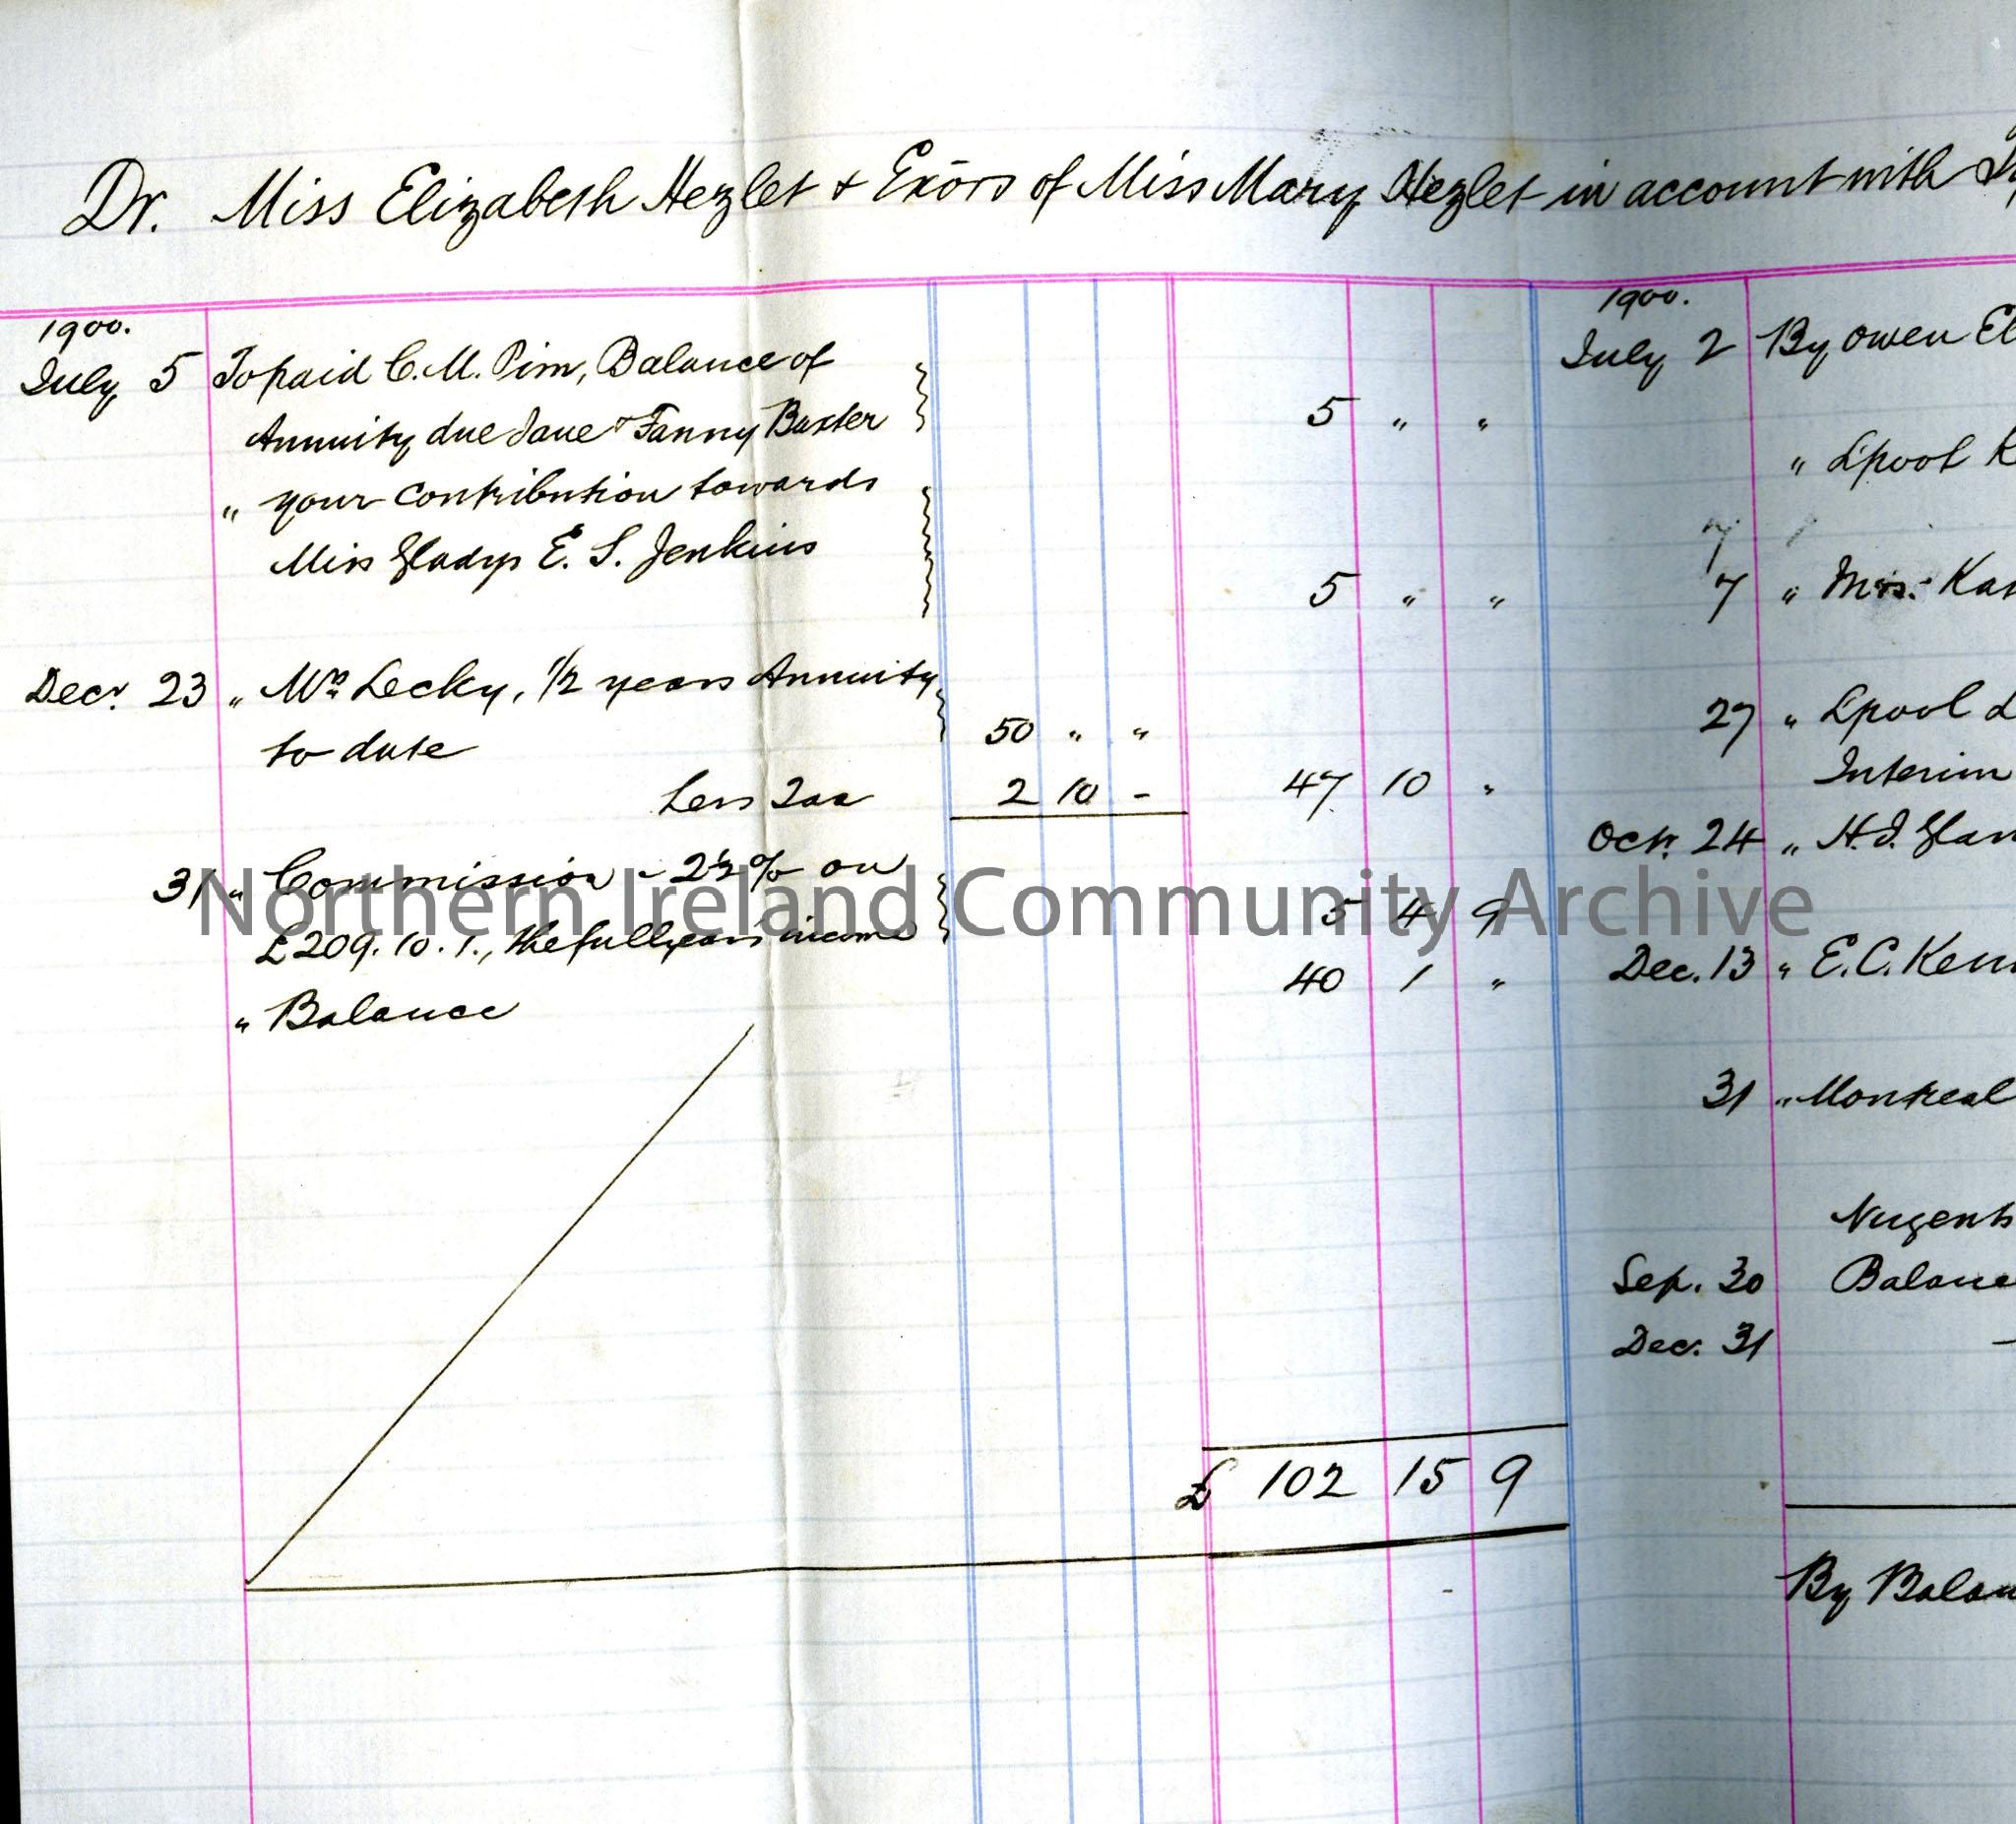 Dr. Miss Elizabeth Hezlet & Exōrs of Miss Mary Hezlet in account with
1900.
July 5 To paid C. M. Pim, Balance of
Annuity due Jane & Fanny Baxter 5 " "
" your contribution towards
Miss Gladys E. S. Jenkins 5 " "
Decr. 23 " Lecky, 1/2 years Annuity
to date 50 " "
Less Tax 2 10 - 47 10 "
31 " Commission - 2½% on
£209. 10. 1., the full years income 5 4 9
" Balance 40 1 "
£ 102 15 9
1900.
July 2 By Owen El
" Lpool R
7
7 " Mrs. Kan
27 " Lpool L
Interim
Oct. 24 " H. J.
Dec. 13 " E. C. Kenn
31 " Montreal
Nugents
Sep. 30 Balance
Dec. 31
By Balan
Northern Ireland Community Archive